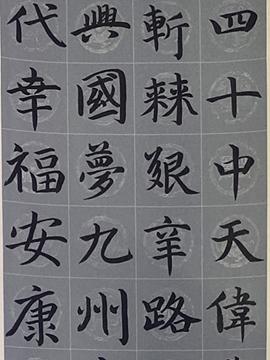 四十申天偉
斬棘艱辛路
興國夢九州
代幸福安康